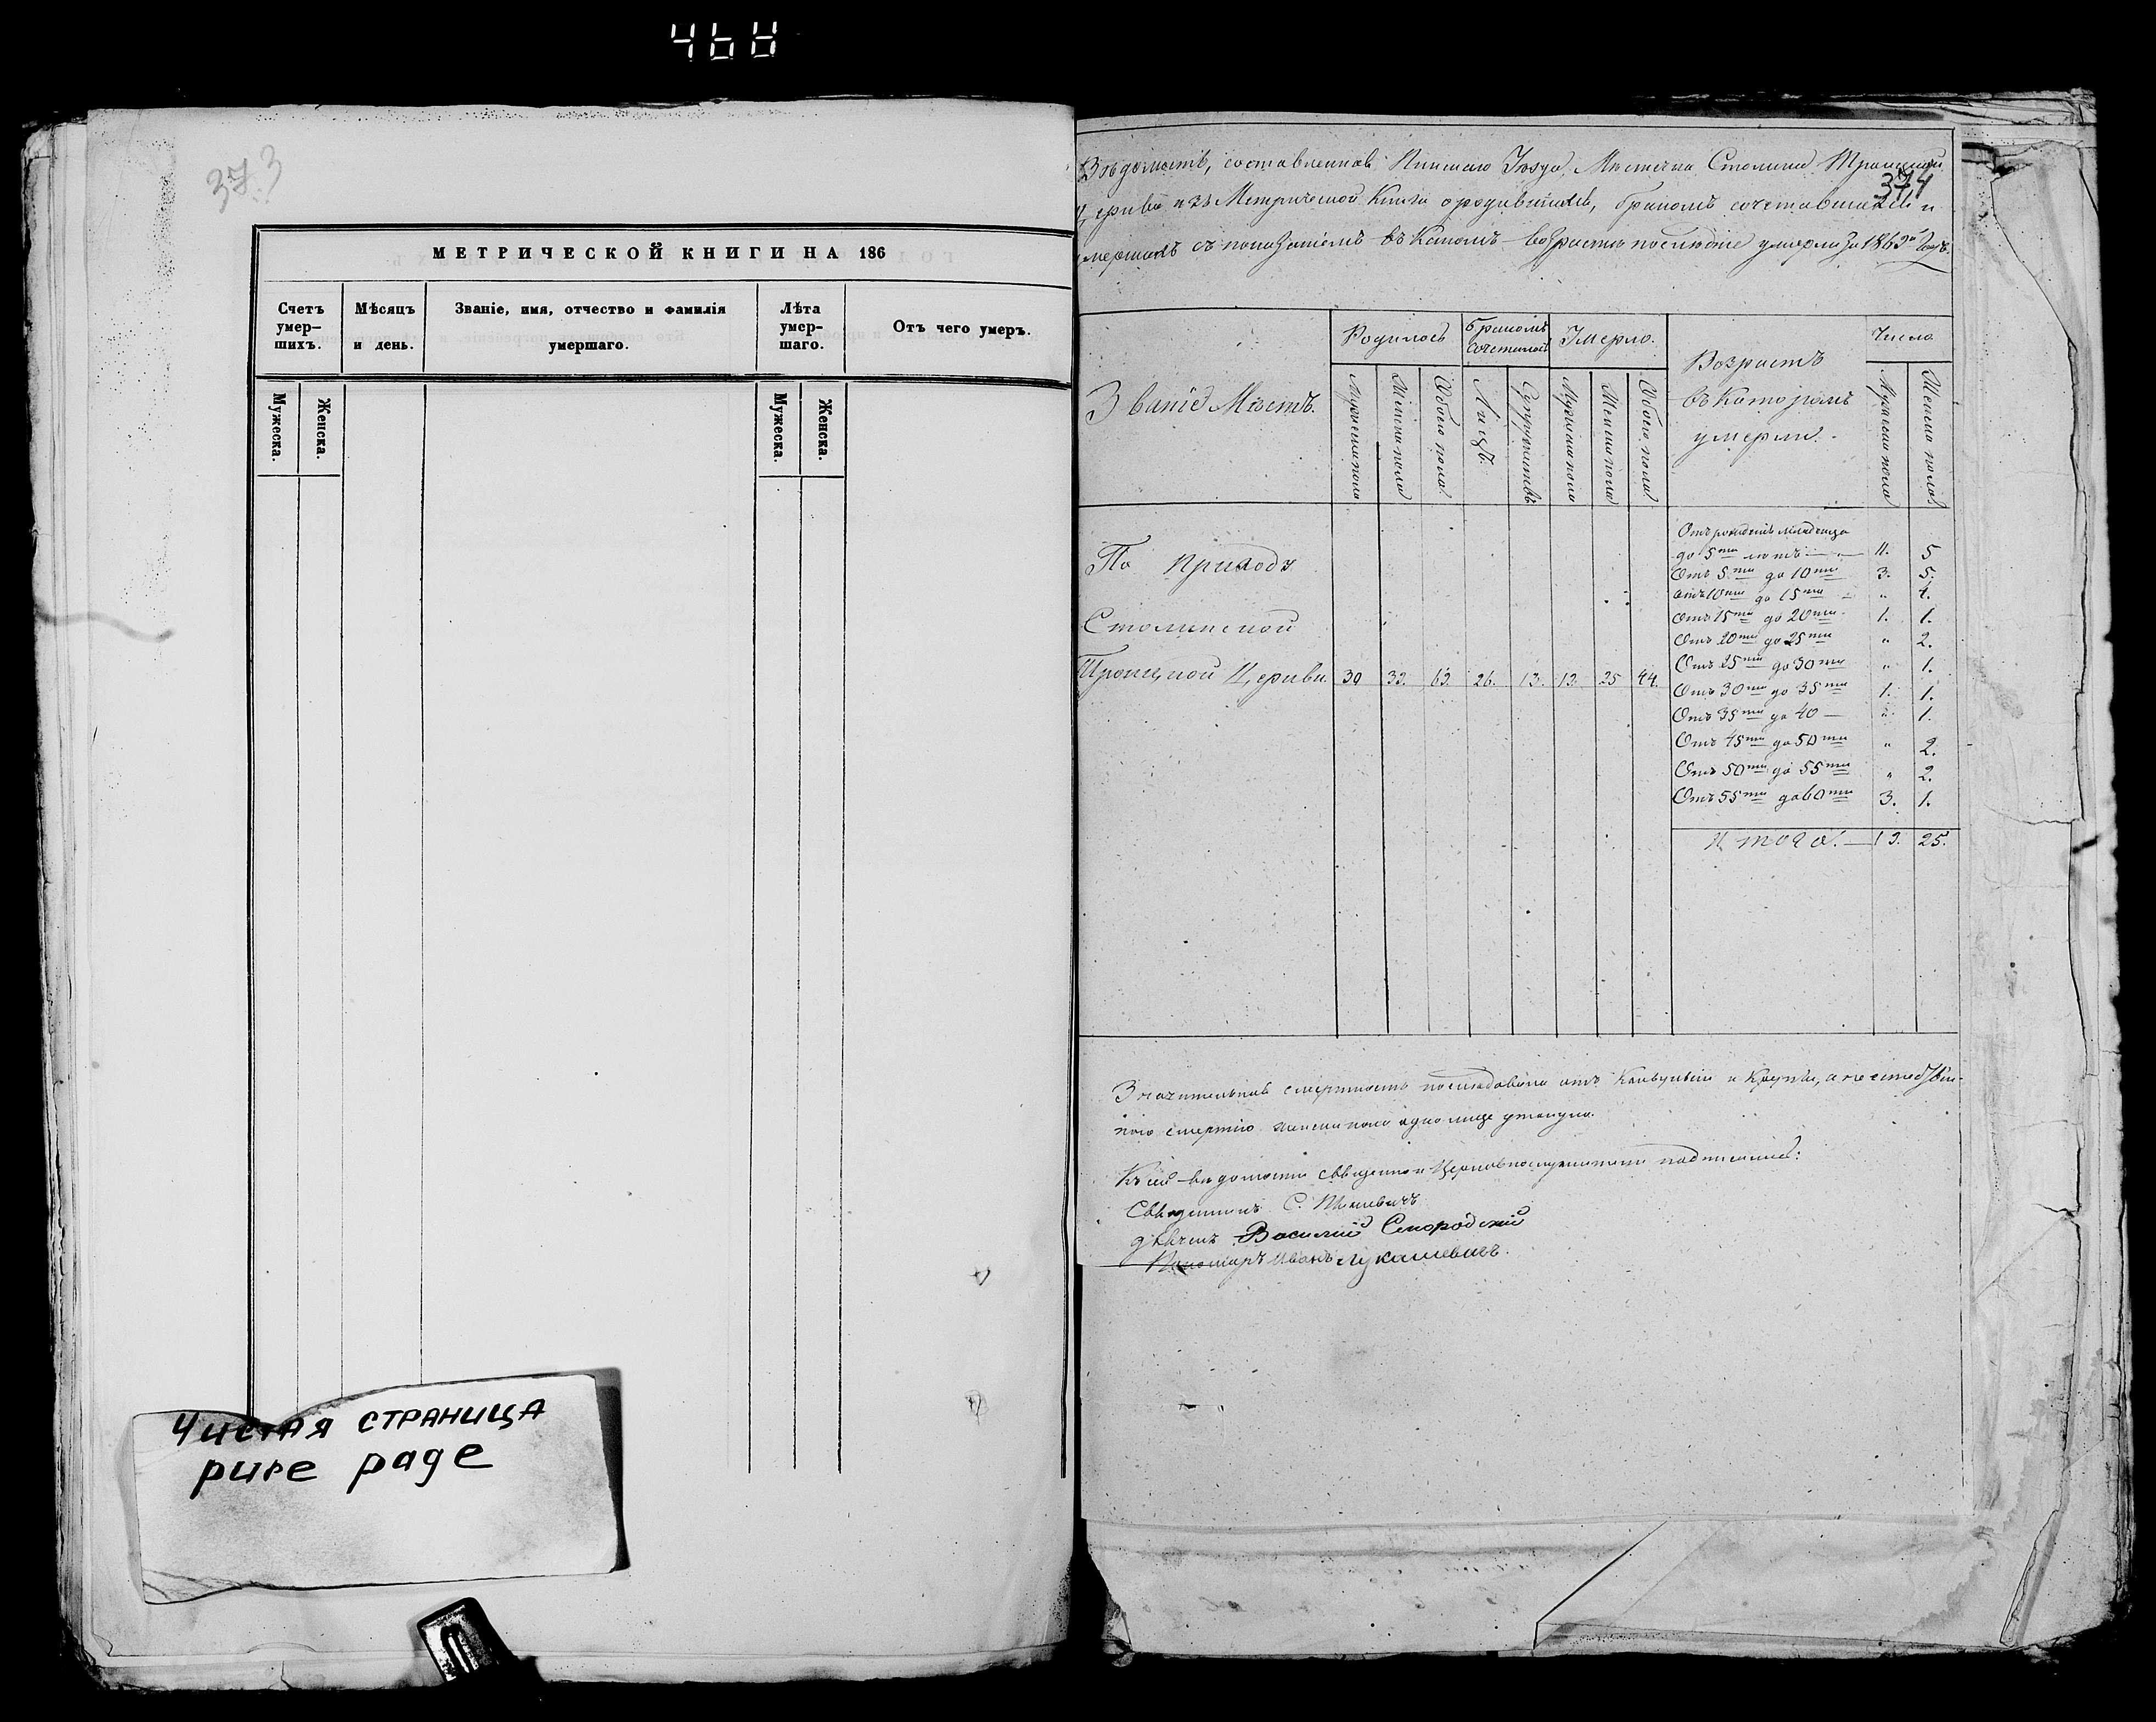 468
373
МЕТРИЧЕСКОЙ КНИГИ НА 186
Счетъ умер-шихъ.
Мѣсяцъ и день.
Званіе, имя, отчество и фамилія умершаго.
Лѣта умер-шаго.
Отъ чего умеръ.
Мужеска.
Женска.
Мужеска.
Женска.
Чистая страница
pure page
374
Вѣдомость, составленная Пинскаго Уѣзда, Мѣстечка Столина Троицкой
Церкви изъ Метрической Книги о родившихся, бракомъ сочетавшихся и
умершихъ съ показаніемъ въ какомъ возрастѣ послѣдніе умерли за 1863й Годъ.
Званіе Мѣстъ.
Родилось
Бракомъ сочеталось
Умерло.
Возрастъ
въ которомъ
умерли.
Число
Мужеска пола
Женска пола
Обоего пола
Лицъ.
Супружествъ
Мужеска пола
Женска пола
Обоего пола
Мужеска пола
Женска пола
По приходу
Столинской
Троицкой Церкви 30 33. 63. 26. 13. 13. 25 44.
Отъ рожденія младенца
до 5ти лѣтъ — 11. 5
Отъ 5ти до 10ти 3. 5.
Отъ 10ти до 15ти " 4.
Отъ 15ти до 20ти 1. 1.
Отъ 20ти до 25ти " 2.
Отъ 25ти до 30ти " 1.
Отъ 30ти до 35ти 1. 1.
Отъ 35ти до 40 — " 1.
Отъ 45ти до 50ти " 2.
Отъ 50ти до 55ти " 2.
Отъ 55ти до 60ти 3. 1.
Итого. — 19. 25.
Значительная смертность послѣдовала отъ Конвульсіи и Крупа, а неестествен-
ною смертію женска пола одно лице утонуло.
Къ сей вѣдомости священно и Церковнослужители подписались:
Священникъ С.
дьячекъ Василій Смородскій
Пономарь Иванъ Лукашевичъ.